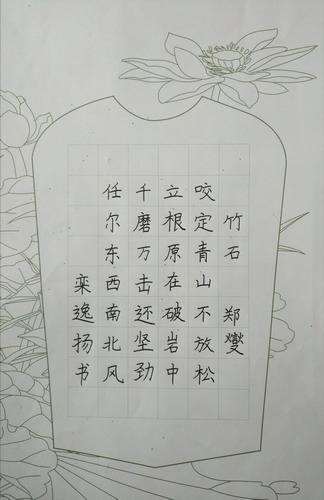 竹石 郑燮
咬定青山不放松
立根原在破岩中
千磨万击还坚劲
任尔东西南北风
栾逸扬书